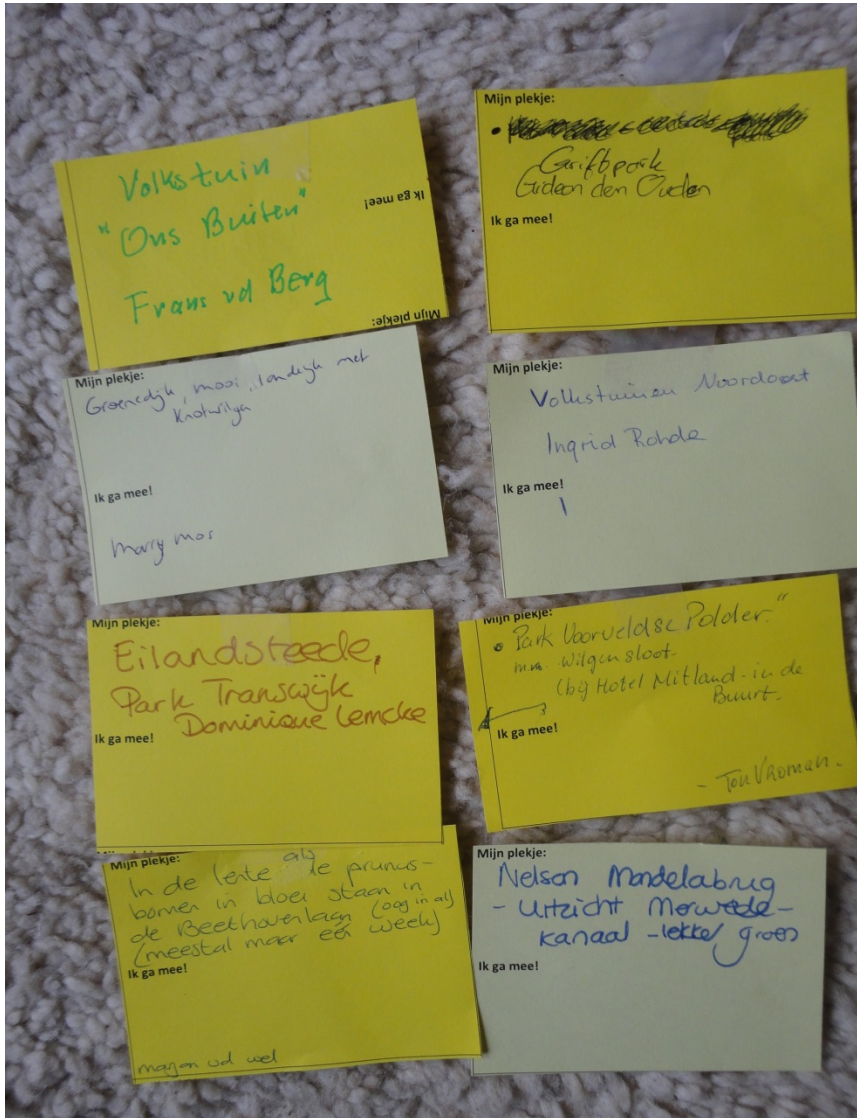 Volkstuin
"Ons Buiten"
Frans vd Berg
Ik ga mee!
Mijn plekje:
Mijn plekje:
Griftpark
Gideon den Ouden
Ik ga mee!
Mijn plekje:
Groenedijk, mooi, landelijk met
Knotwilgen
Ik ga mee!
Marry mos
Mijn plekje:
Volkstuinen Noordoost
Ingrid Rohde
Ik ga mee!
Mijn plekje:
Eilandsteede,
Park Transwijk
Dominique Lemcke
Ik ga mee!
Mijn plekje:
• Park Voorveldse Polder."
m.n. Wilgensloot.
(bij Hotel Mitland - in de
Buurt.
Ik ga mee!
- Ton Vroman -
Mijn plekje:
als
In de lente de prunus-
bomen in bloei staan in
de Beethovenlaan (oog in al)
(meestal maar een week)
Ik ga mee!
vd wel
Mijn plekje:
Nelson Mandelabrug
- Uitzicht Merwede-
kanaal - lekker groen
Ik ga mee!